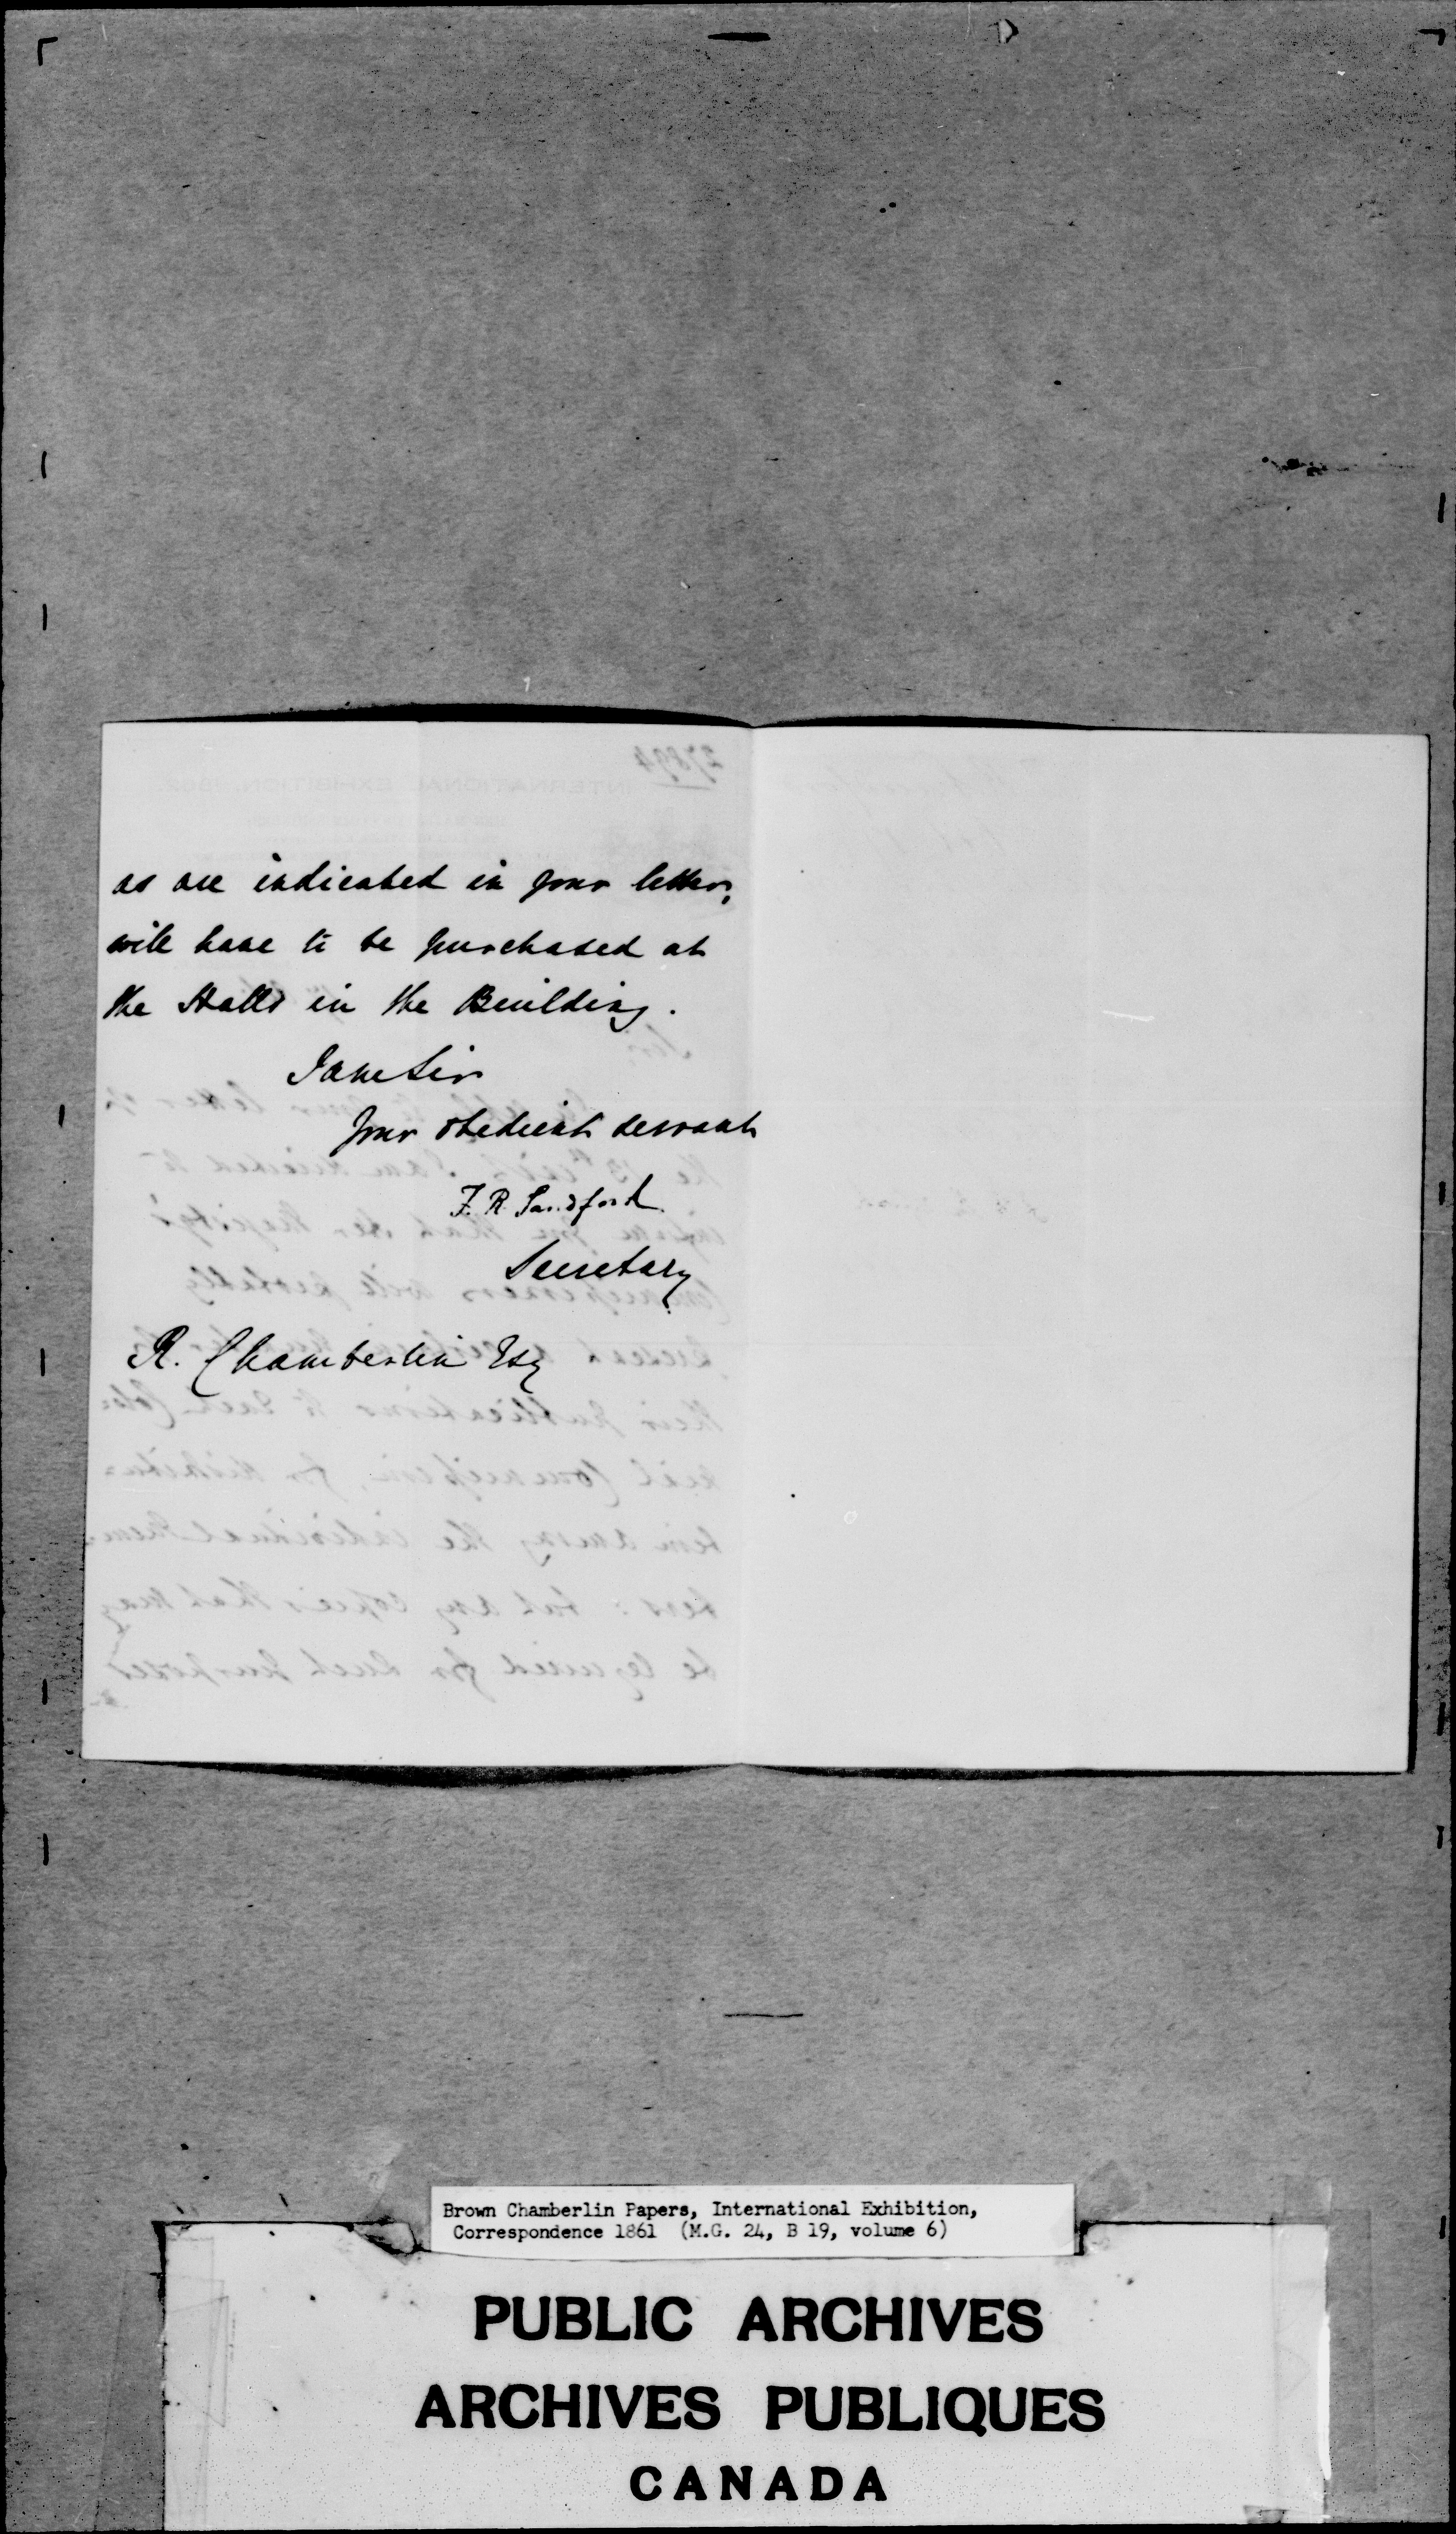 as are indicated in your letter,
will have to be purchased at
the Stalls in the Building.
I am Sir
Your obedient servant
F. R. Sandford
Secretary
R. Chamberlin Esq
Brown Chamberlin Papers, International Exhibition,
Correspondence 1861 (M.G. 24, B 19, volume 6)
PUBLIC ARCHIVES
ARCHIVES PUBLIQUES
CANADA